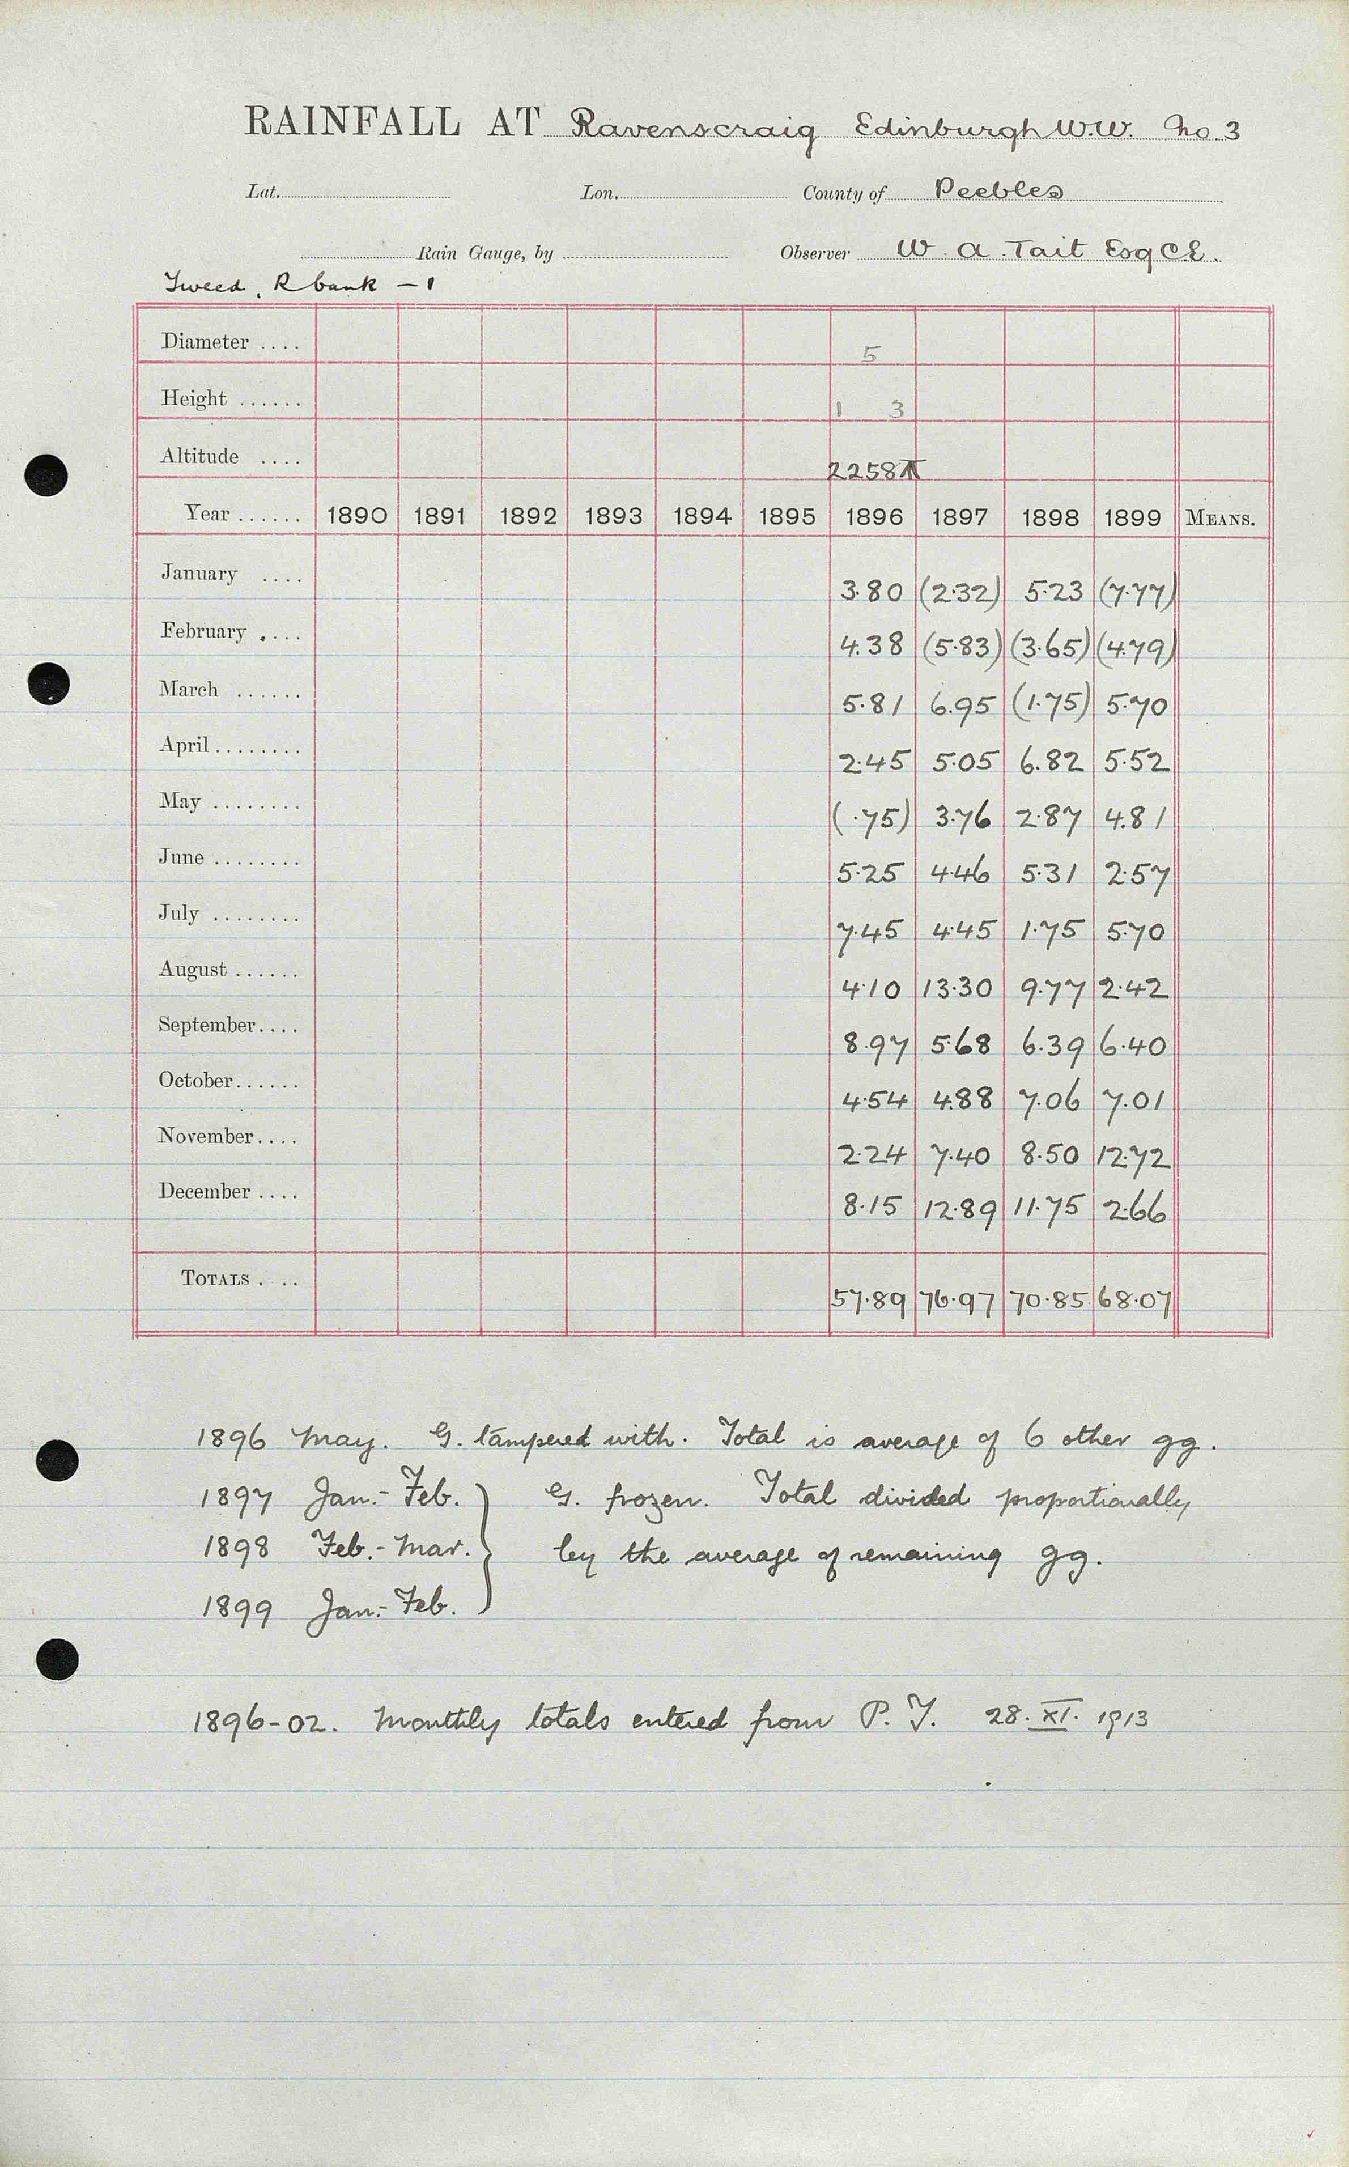 RAINFALL AT Ravenscraig Edinburgh W.W. No. 3
Lat. Lon. County of Peebles
Rain Gauge, by Observer W. A. Tait Esq C.E.
Tweed, R bank - 1
Diameter .... 5
Height ...... 1 3
Altitude .... 2258
Year ...... 1890 1891 1892 1893 1894 1895 1896 1897 1898 1899 MEANS.
January .... 3.80 (2.32) 5.23 (7.77)
February .... 4.38 (5.83) (3.65) (4.79)
March ...... 5.81 6.95 (1.75) 5.70
April ........ 2.45 5.05 6.82 5.52
May ........ ( .75) 3.76 2.87 4.81
June ........ 5.25 4.46 5.31 2.57
July ........ 7.45 4.45 1.75 5.70
August ...... 4.10 13.30 9.77 2.42
September.... 8.97 5.68 6.39 6.40
October...... 4.54 4.88 7.06 7.01
November.... 2.24 7.40 8.50 12.72
December .... 8.15 12.89 11.75 2.66
TOTALS .... 57.89 76.97 70.85 68.07
1896 May. G. tampered with. Total is average of 6 other gg.
1897 Jan.- Feb. } G. frozen. Total divided proportionally
1898 Feb.- Mar. } by the average of remaining gg.
1899 Jan.- Feb. }
1896-02. Monthly totals entered from P. T. 28. XI. 1913